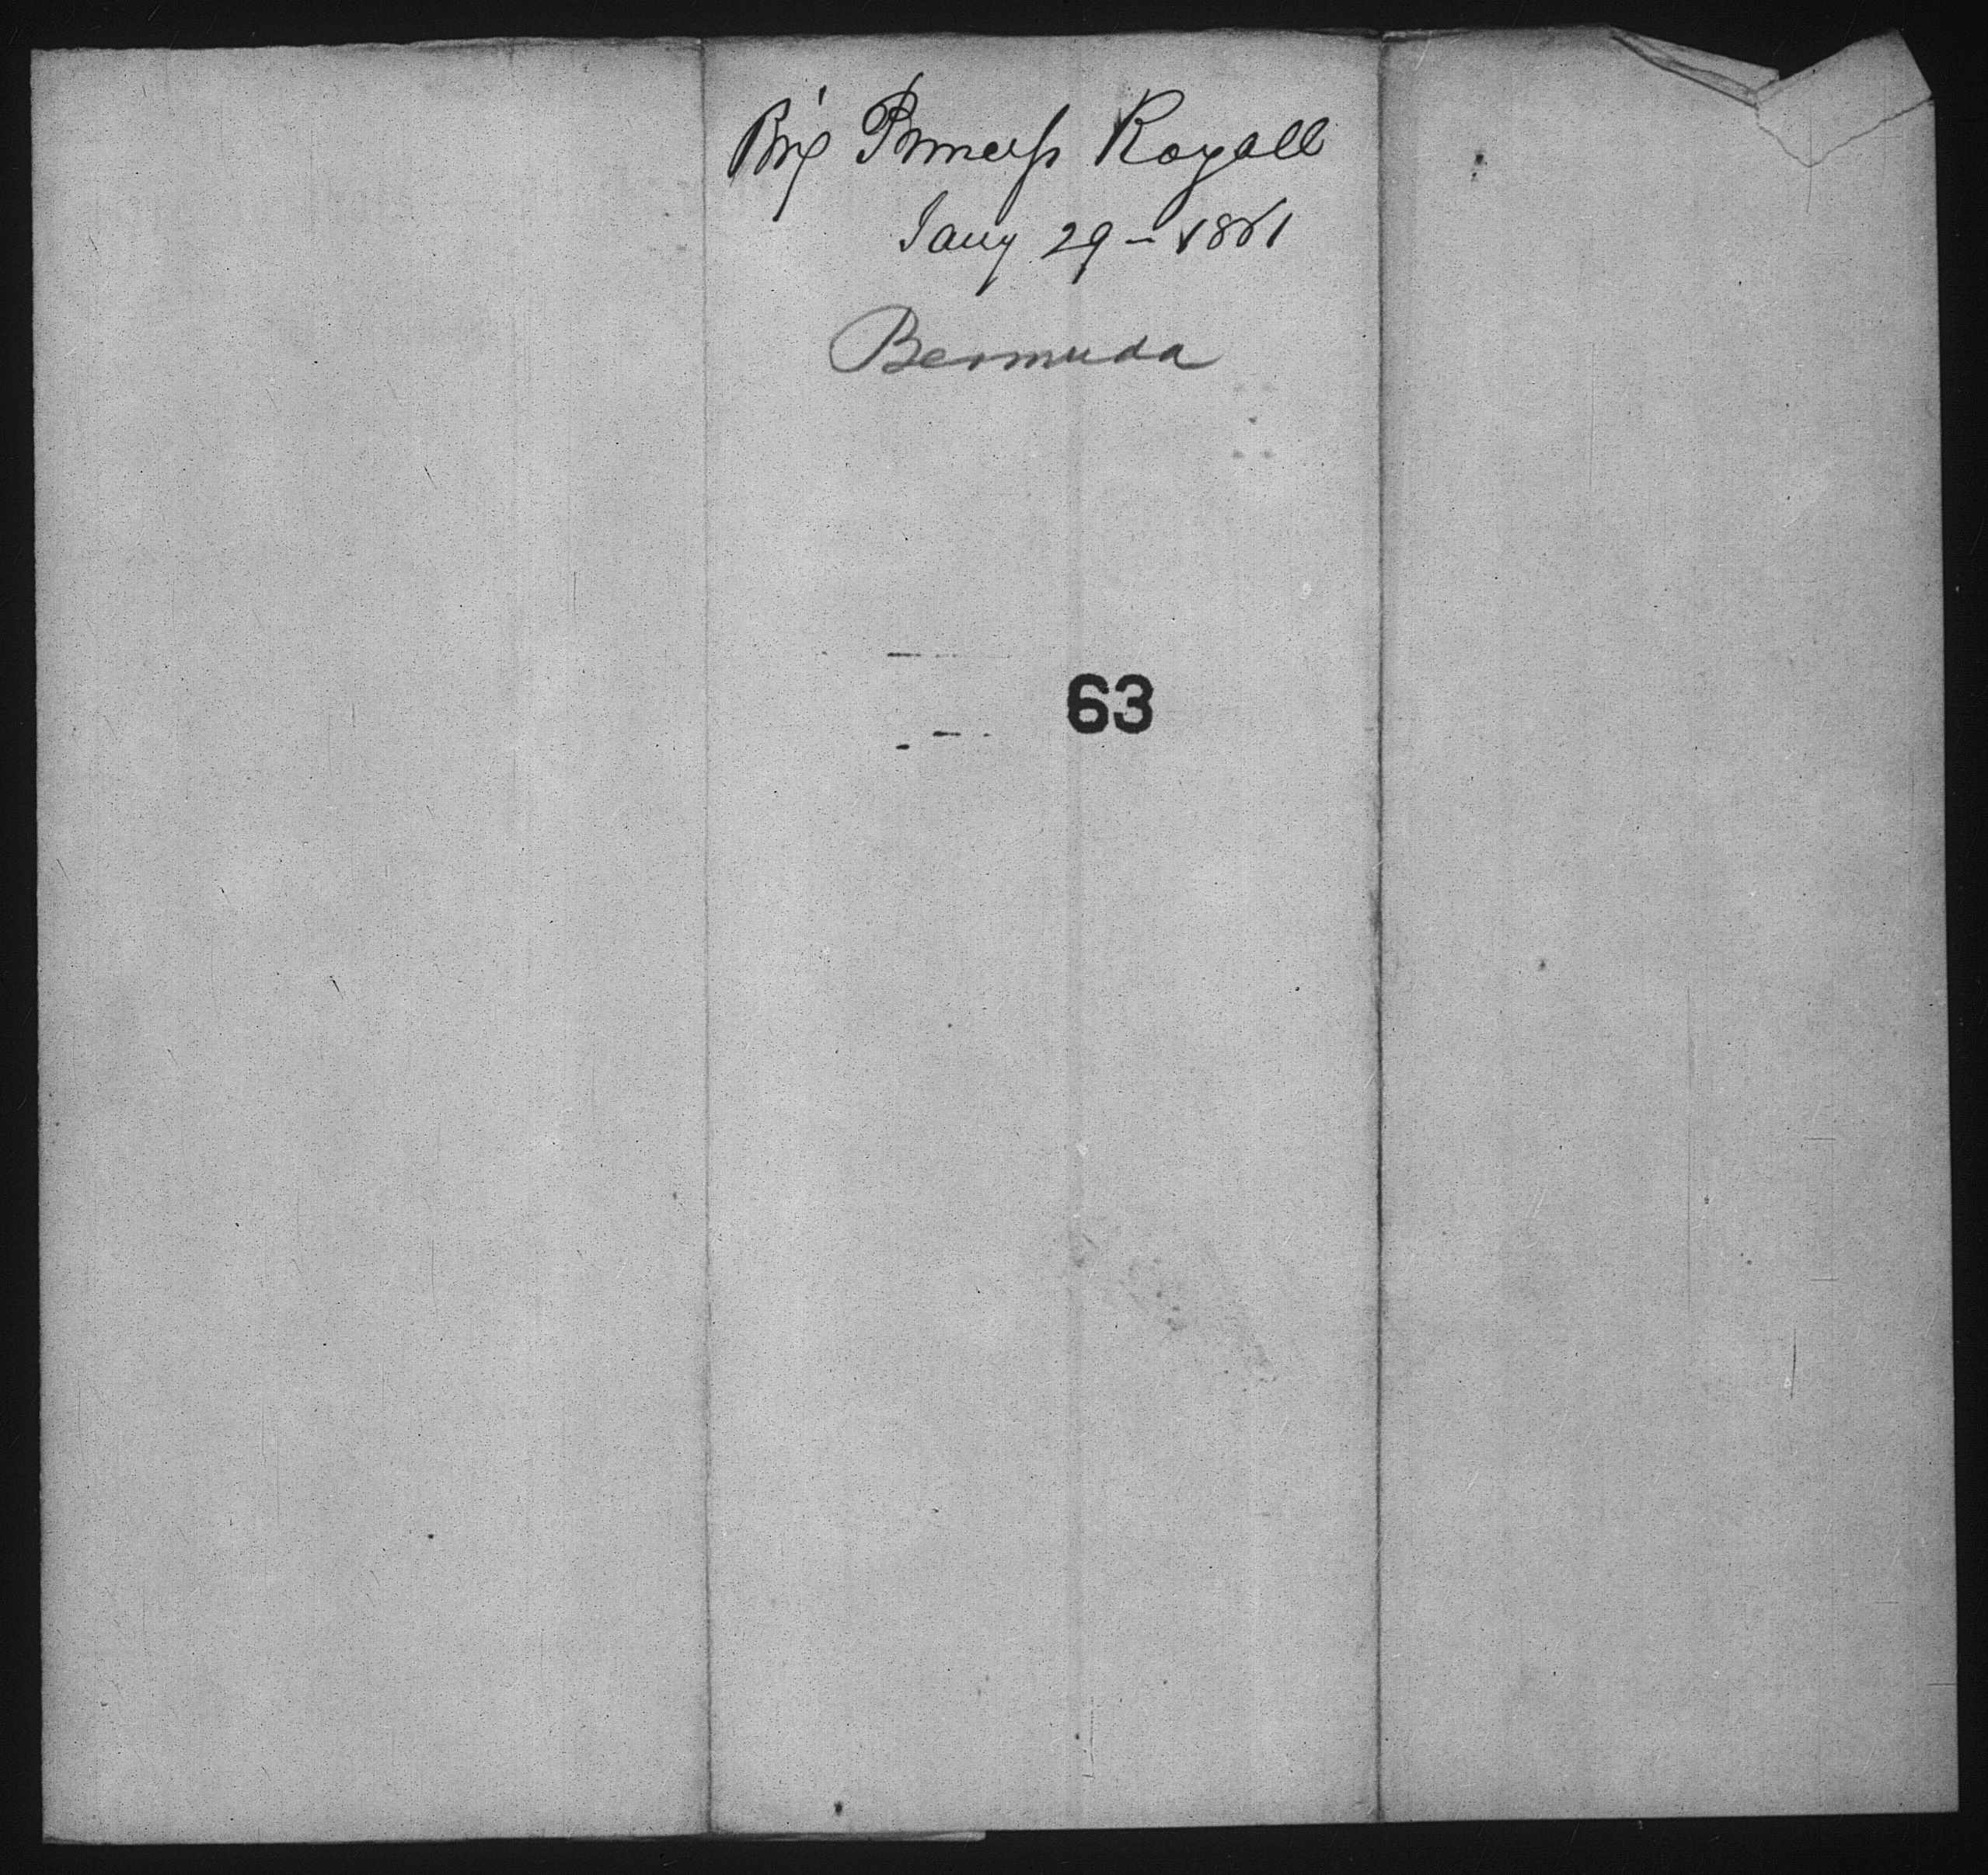 Brig Princess Royall
Jany 29 - 1861
Bermuda
63